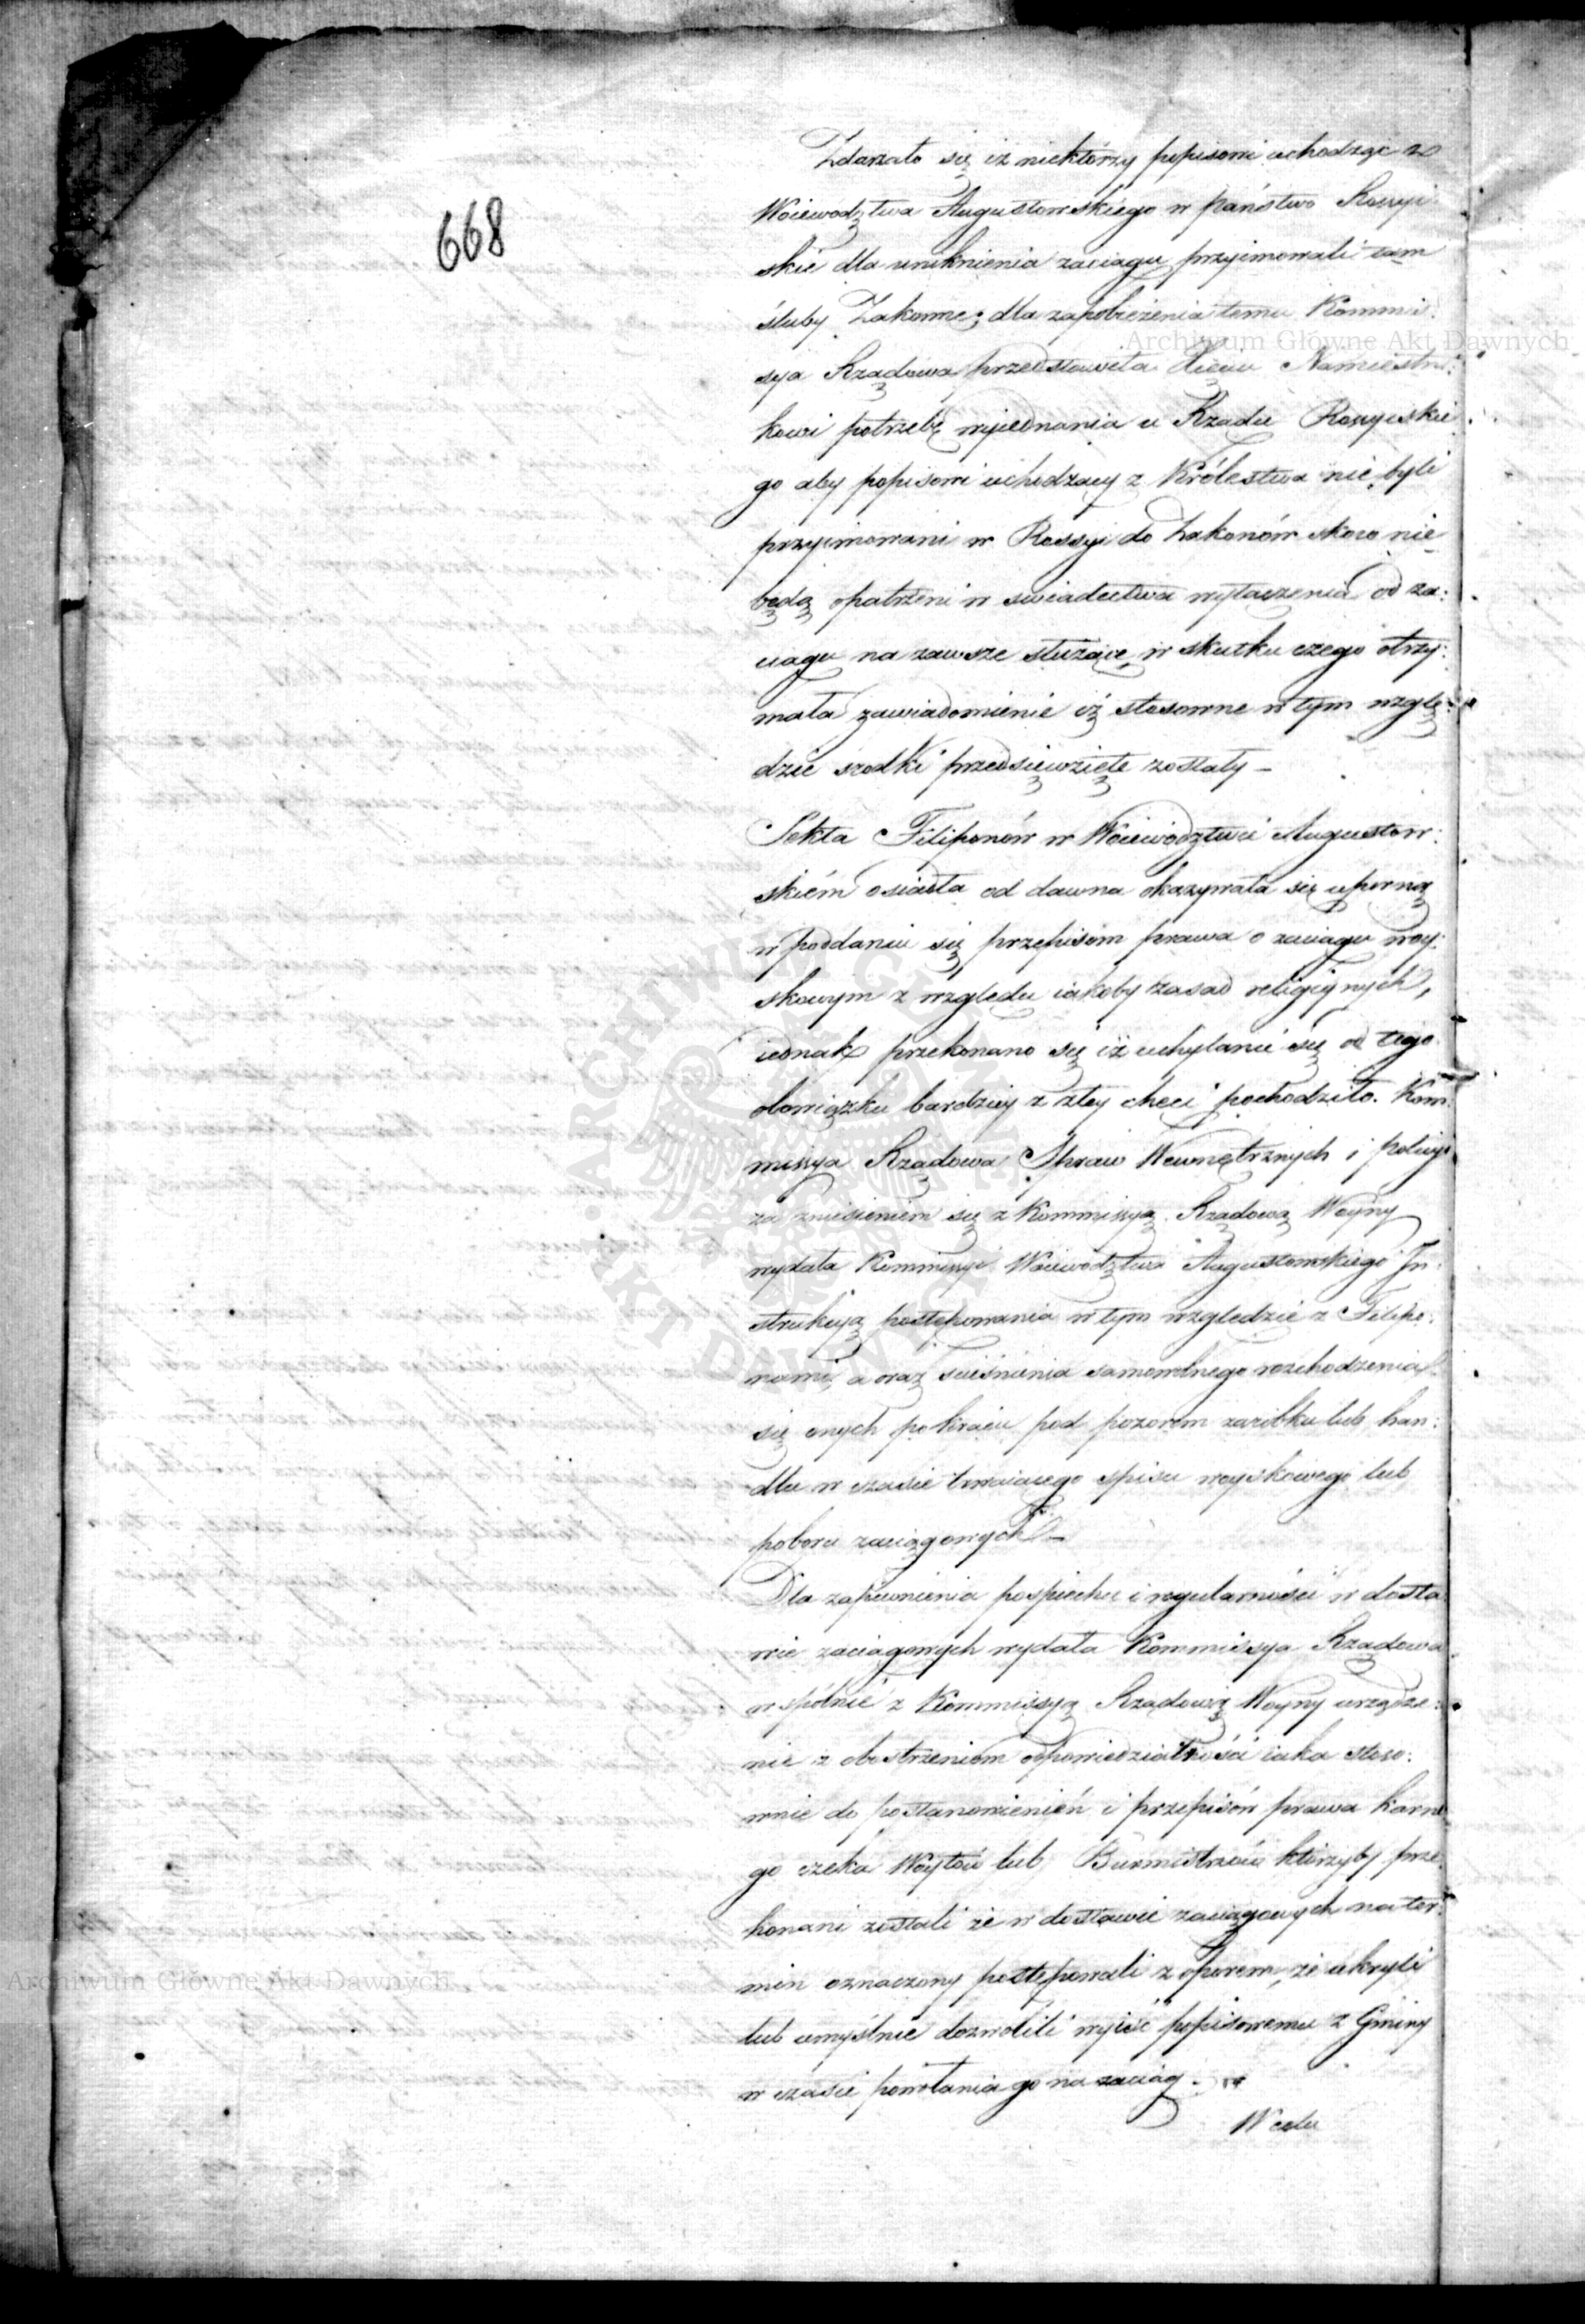 668
Zdarzało się iż niektórzy popisowi uchodząc z
Woiewodztwa Augustowskiego w państwo Rossyi:
skie dla uniknienia zaciągu przyimowali tam
śluby Zakonne; dla zapobieżenia temu Kommis:
sya Rządowa przedstawiła Xięciu Namiestni:
kowi potrzebę wyiednania u Rządu Rossyiskie:
go aby popisowi uchodzący z Królestwa nie byli
przyimowani w Rossyi do Zakonów skoro nie
będą opatrzeni w swiadectwa wyłączenia od za:
ciągu na zawsze służące, w skutku czego otrzy:
mała zawiadomienie iż stosowne w tym wzglę:
dzie srodki przedsięwzięte zostały –
Sekta Filiponów w Woiewodztwie Augustow:
skiém osiadła od dawna okazywała się uporną
w poddaniu się przepisom prawa o zaciągu woy:
skowym z względu iakoby zasad religiynych,
iednak przekonano się iż uchylanie się od tego
obowiązku bardziey z złey chęci pochodziło. Kom:
missya Rządowa Spraw Wewnętrznych i policyi
za zniesieniem się z Kommissyą Rządową Woyny
wydała Kommissyi Woiewództwa Augustowskiego In:
strukcyą postępowania w tym względzie z Filipo:
nami, a oraz ścieśnienia samowolnego rozchodzenia
się onych po kraiu pod pozorem zarobku lub han:
dlu w czasie trwaiącego spisu woyskowego lub
poboru zaciągowych –
Dla zapewnienia pospiechu i regularności w dosta:
wie zaciągowych wydała Kommissya Rządowa
wspólnie z Kommissyą Rządową Woyny urządze:
nie z obostrzeniem odpowiedzialności iaka stoso:
wnie do postanowień i przepisów prawa karne:
go czeka Woytów lub Burmistrzów którzyby prze:
konani zostali że w dostawie zaciągowych na ter:
min oznaczony postępowali z oporem, że ukryli
lub umyślnie dozwolili wyiść popisowemu z Gminy
w czasie powołania go na zaciąg. –
W celu
Archiwum Główne Akt Dawnych
Archiwum Główne Akt Dawnych
ARCHIWUM GŁÓWNE AKT DAWNYCH